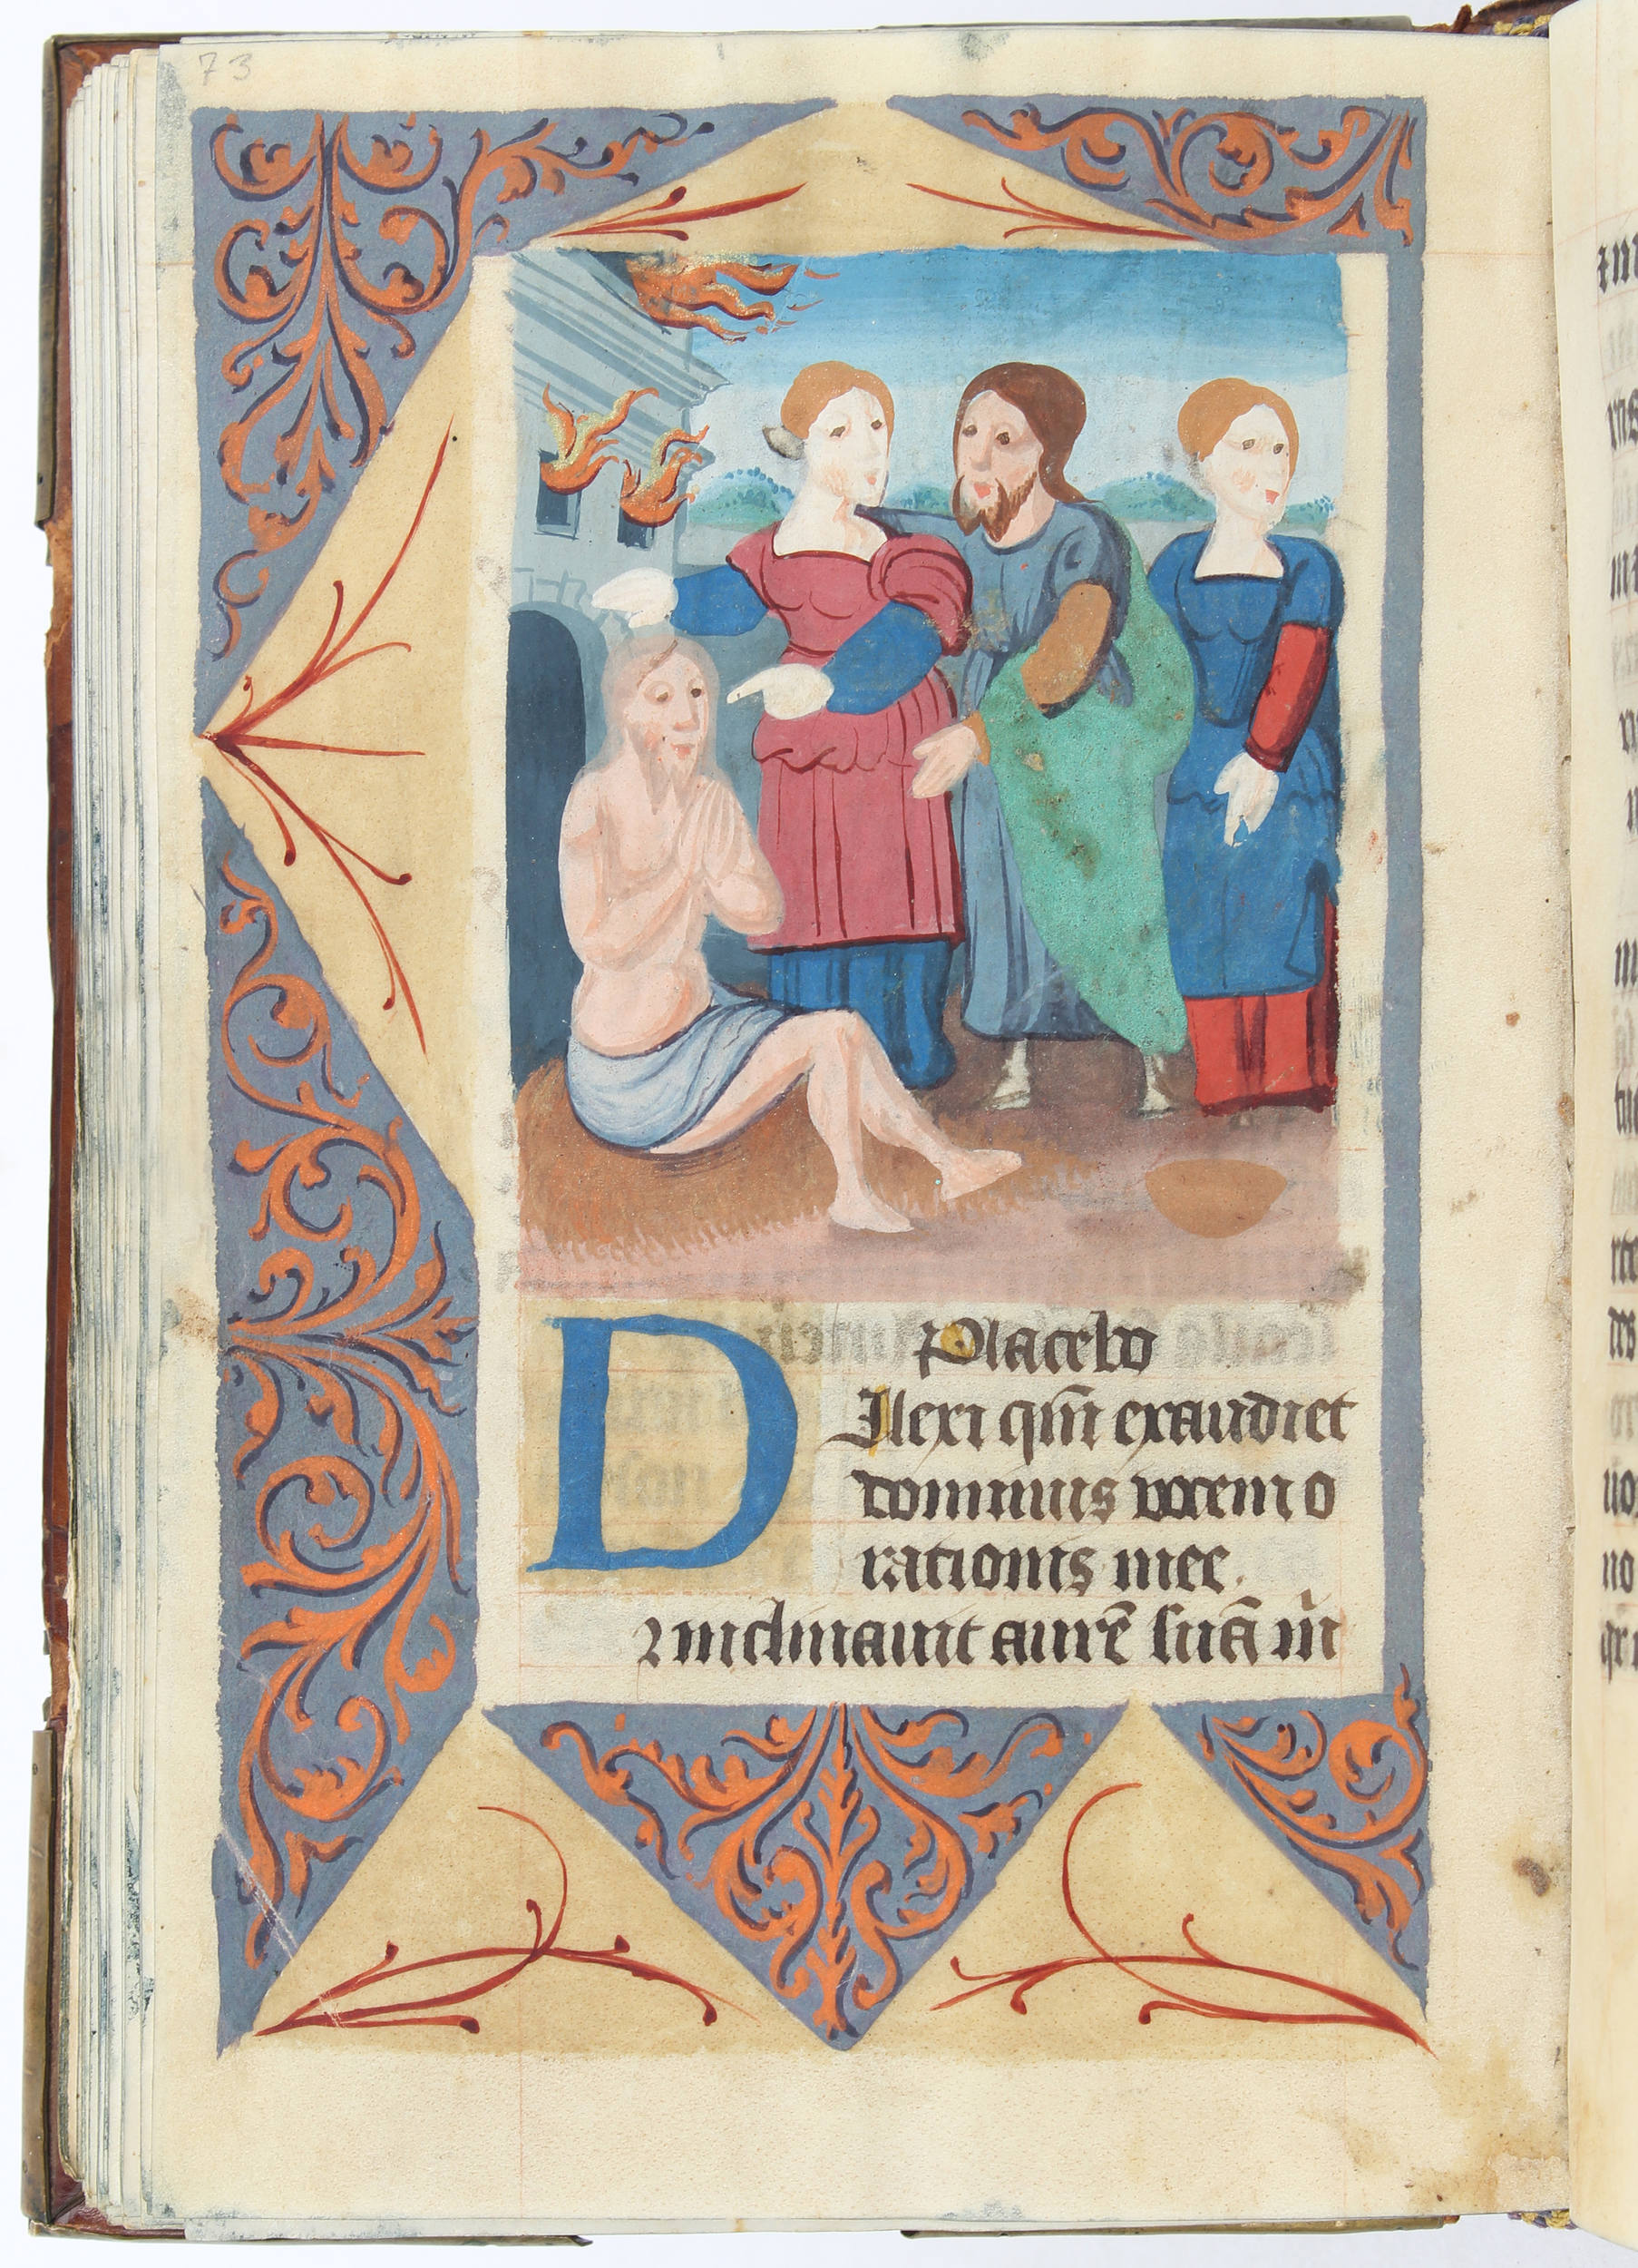 73
Placebo
D Ilexi qm̄ exaudiet
dominus vocem o
rationis mee.
Quia inclinauit aurē suā m̄